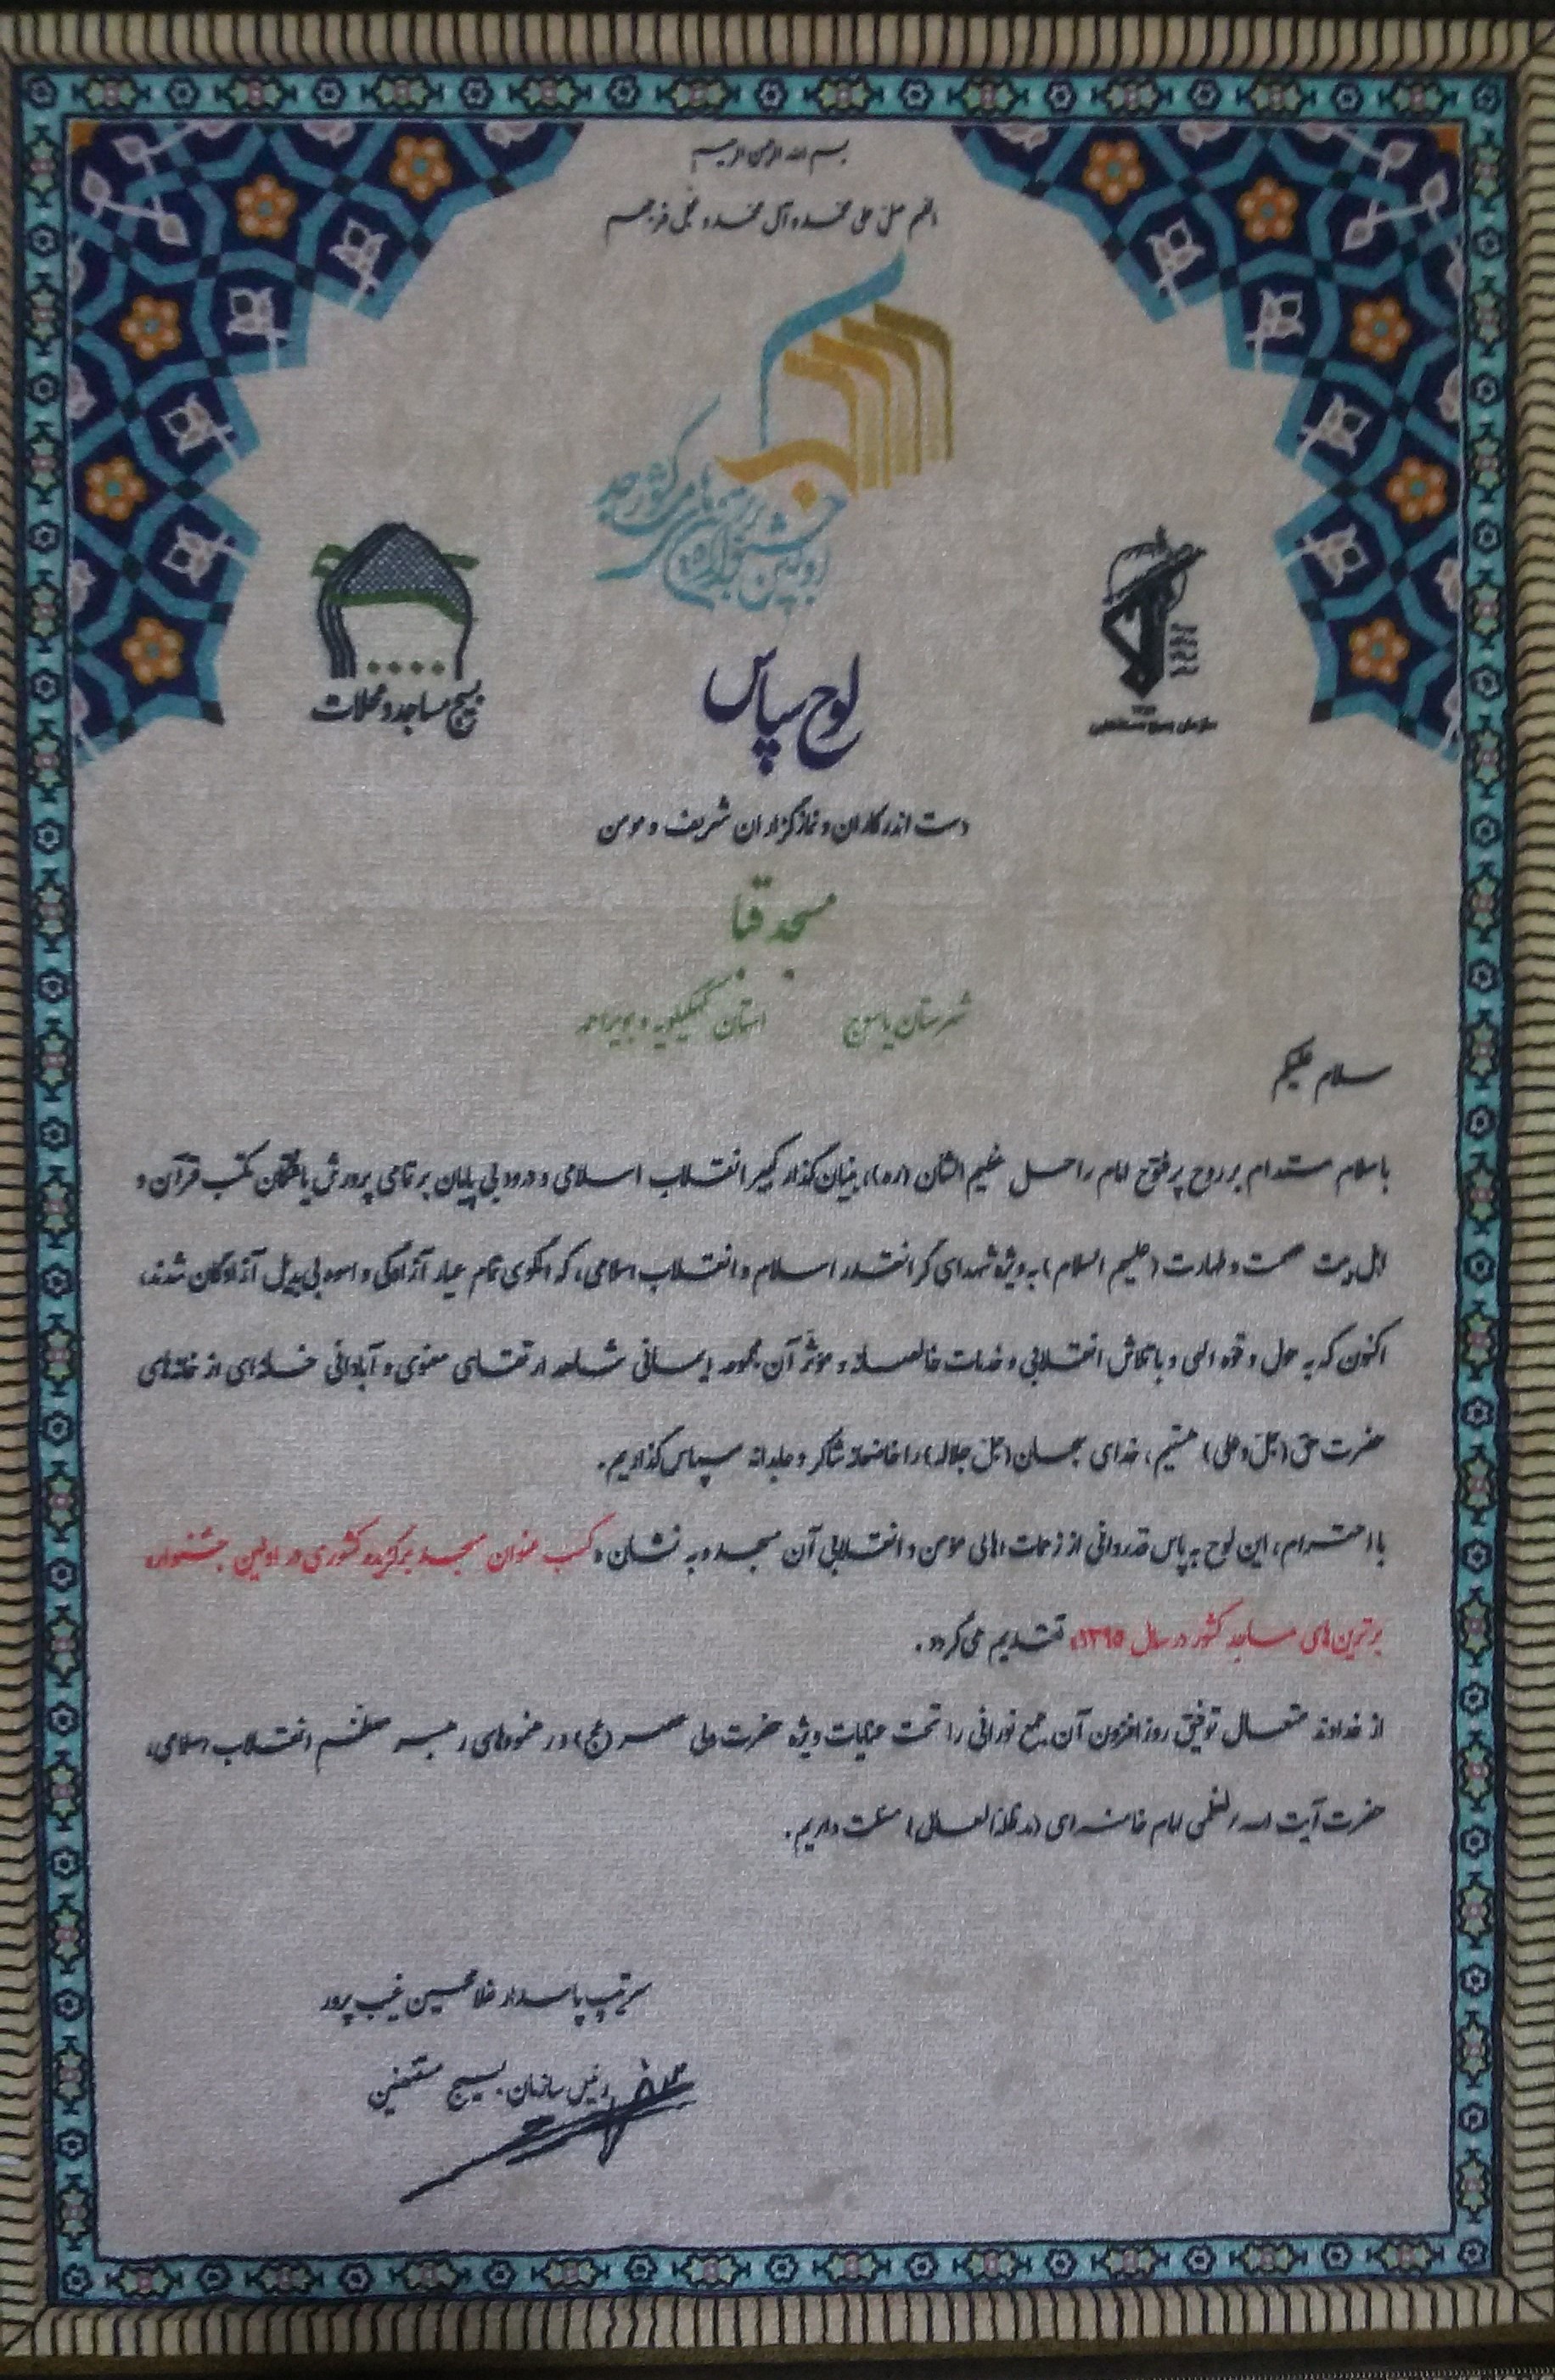 بسم الله الرحمن الرحیم
اللهم صل علی محمد و آل محمد و عجل فرجهم
اولین جشنواره برترین‌های مسجد کشور
بسیج مساجد و محلات
سازمان بسیج مستضعفین
لوح سپاس
دست اندرکاران و نمازگزاران شریف و مومن
مسجد قبا
شهرستان یاسوج استان کهگیلویه و بویراحمد
سلام علیکم
با سلام مستدام بر روح پر فتوح امام راحل عظیم الشأن (ره)، بنیان گذار کبیر انقلاب اسلامی و درود بی پایان بر تمامی پرورش یافتگان مکتب قرآن و
اهل بیت عصمت و طهارت (علیهم السلام) به ویژه شهدای گرانقدر اسلام و انقلاب اسلامی، که الگوی تمام عیار آزادگی و اسوه بی بدیل آزادگان شدند،
اکنون که به حول و قوه الهی و با تلاش انقلابی و خدمات خالصانه و مؤثر آن مجموعه ایمانی شاهد ارتقای معنوی و آبادانی خانه‌ای از خانه‌های
حضرت حق (جل و علی) هستیم، خدای سبحان (جل جلاله) را خاضعانه شاکر و عابدانه سپاس گذاریم.
با احترام، این لوح به پاس قدردانی از زحمات اهالی مومن و انقلابی آن مسجد و به نشان «کسب عنوان مسجد برگزیده کشوری در اولین جشنواره
برترین های مساجد کشور در سال ۱۳۹۵» تقدیم می گردد.
از خداوند متعال توفیق روز افزون آن جمع نورانی را تحت عنایات ویژه حضرت ولی عصر (عج) و رهنمودهای رهبر معظم انقلاب اسلامی،
حضرت آیت الله العظمی امام خامنه ای (مدظله العالی) مسئلت داریم.
سرتیپ پاسدار غلامحسین غیب پرور
رئیس سازمان بسیج مستضعفین